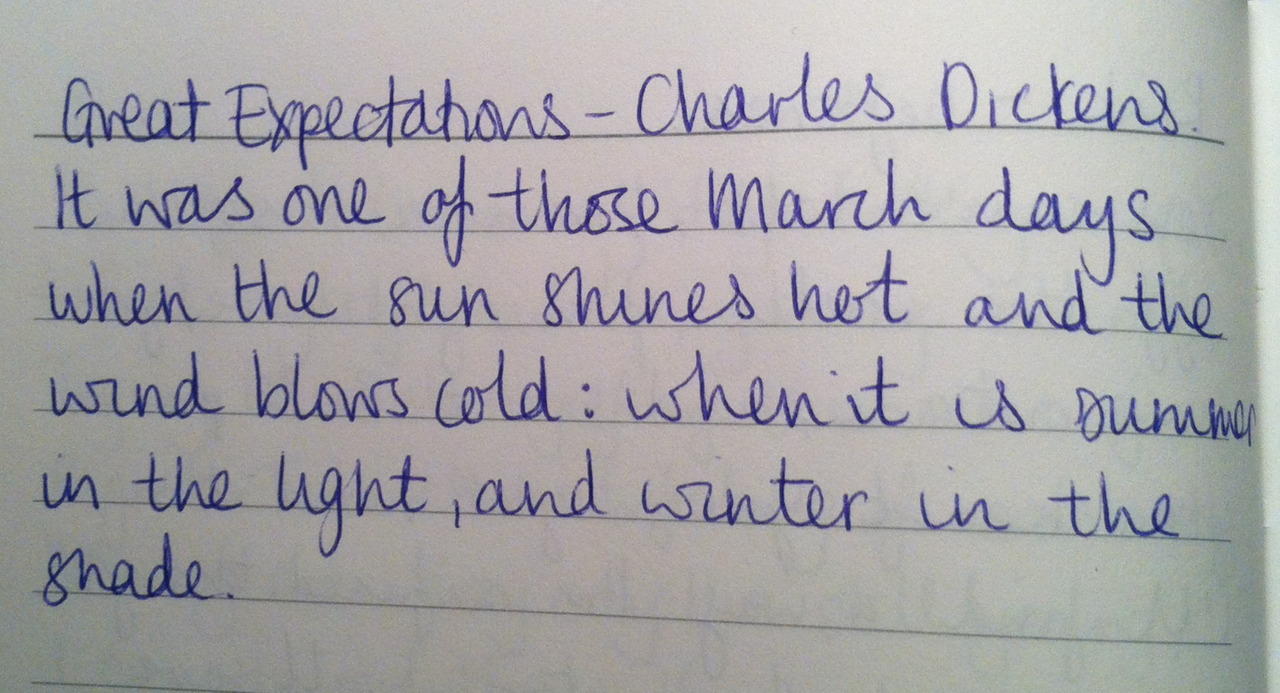 Great Expectations – Charles Dickens.
It was one of those March days
when the sun shines hot and the
wind blows cold: when it is summer
in the light, and winter in the
shade.